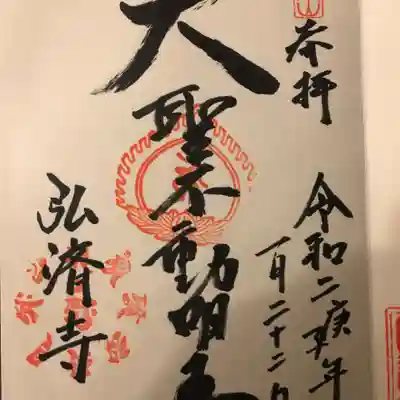 奉拝
令和二庚子年
一月二十二日
大聖不動明王
弘済寺